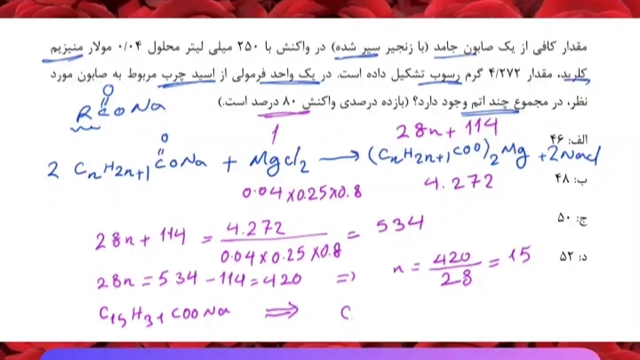 مقدار کافی از یک صابون جامد (با زنجیر سیر شده) در واکنش با ۲۵۰ میلی لیتر محلول ۰/۰۴ مولار منیزیم
کلرید، مقدار ۴/۲۷۲ گرم رسوب تشکیل داده است. در یک واحد فرمولی از اسید چرب مربوط به صابون مورد
نظر، در مجموع چند اتم وجود دارد؟ (بازده درصدی واکنش ۸۰ درصد است.)
O
R C O Na
الف: ۴۶
1
28n + 114
O
2 CnH2n+1 C O Na + MgCl2 → (CnH2n+1 COO)2 Mg + 2NaCl
ب: ۴۸
0.04 × 0.25 × 0.8
4.272
ج: ۵۰
28n + 114 = 4.272 / 0.04 × 0.25 × 0.8 = 534
د: ۵۲
28n = 534 - 114 = 420 ⇒ n = 420 / 28 = 15
C15 H31 COO Na ⇒ C